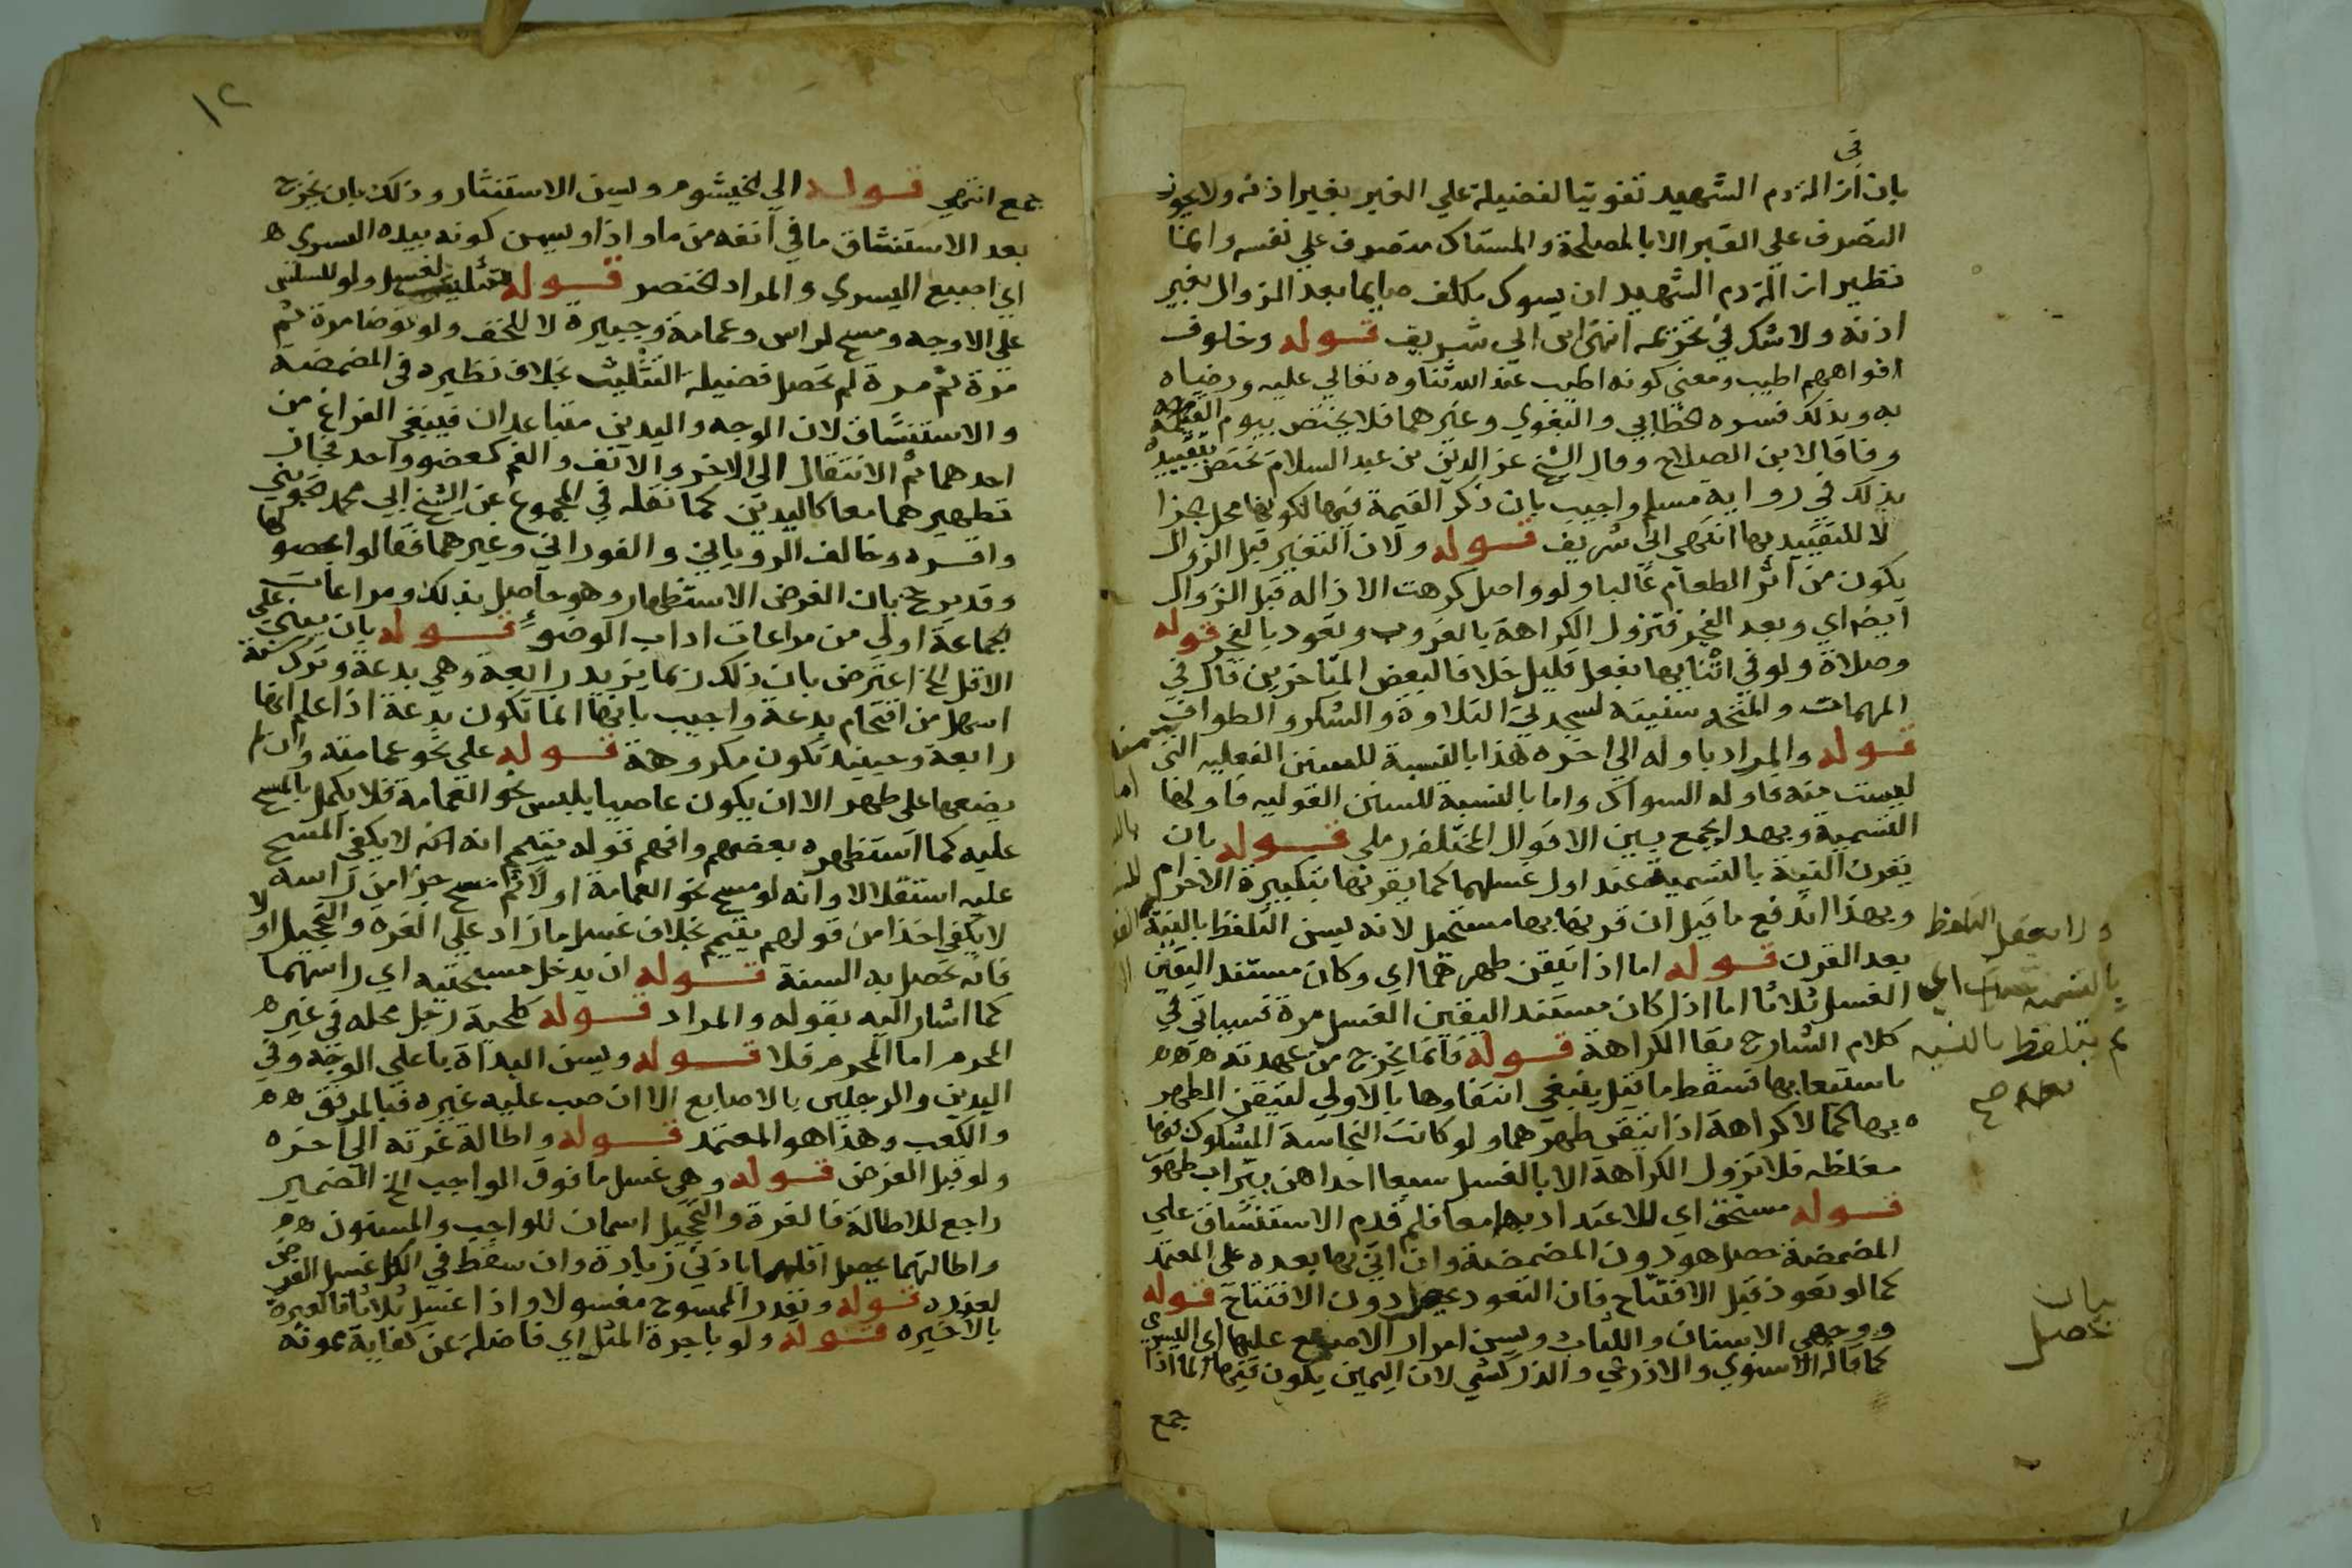 في
بان ازالة دم الشهيد تفويتا لفضيلة علي الغير بغير اذنه ولا يجوز
التصرف علي الغير الا بالمصلحة والمستاك متصرف علي نفسه وانما
نظير ازالة دم الشهيد ان يسوك مكلف صايما بعد الزوال بغير
اذنه ولا شك في تحريمه انتهى ابن ابي شريف قوله وخلوف
افواههم اطيب ومعني كونه اطيب عند الله ثناوه تعالي عليه ورضاه
به وبذلك فسره الخطابي والبغوي وغيرهما فلا يختص بيوم القيمة
وفاقا لابن الصلاح وقال الشيخ عز الدين بن عبد السلام يختص لتقييده
بذلك في رواية مسلم واجيب بان ذكر القيمة فيها لكونها محل الجزا
لا للتقييد بها انتهي ابن ابي شريف قوله ولان التغير قبل الزوال
يكون من اثر الطعام غالبا ولو واصل كرهت الازاله قبل الزوال
ايضا اي وبعد الفجر فتزول الكراهة بالغروب وتعود بالفجر قوله
وصلاة ولو في اثنايها بفعل قليل خلافا لبعض المتاخرين قال في
المهمات والمتجه سنيته لسجدتي التلاوة والشكر والطواف
قوله والمراد باوله الي اخره هذا بالنسبة للسنن الفعليه التي
ليست منه فاوله السواك واما بالنسبة للسنن القوليه فاولها
التسمية وبهذا يجمع بين الاقوال المختلفه رملي قوله بان
يقرن النية بالتسمية عند اول غسلهما كما يقرنها بتكبيرة الاحرام
وبهذا اندفع ما قيل ان قرنها بها مستحيل لانه يسن التلفظ بالنية
بعد القرن قوله اما اذا تيقن طهرهما اي وكان مستند اليقين
الغسل ثلاثا اما اذا كان مستند اليقين الغسل مرة فسياتي في
كلام الشارح بقا الكراهة قوله فانما يخرج من عهدته
باستيعابها فسقط ما قيل ينبغي انتفاوها بالاولي لتيقن الطهر
بها كما لا كراهة اذا تيقن طهرهما ولو كانت النجاسة المشكوك فيها
مغلظه فلا تزول الكراهة الا بالغسل سبعا احداهن بتراب طهور
قوله مستحق اي للاعتداد بهما معا فلو قدم الاستنشاق علي
المضمضة حصل هو دون المضمضة وان اتي بها بعده على المعتمد
كما لو تعوذ قبل الافتتاح فان التعوذ يحصل دون الافتتاح قوله
ووجهي الاسنان واللثات ويسن امرار الاصبع عليها اي اليسري
كما قاله الاسنوي والاذرعي والزركشي لان اليمين يكون فيها الما اذا
جمع
ولا يعقل التلفظ
بالتسمية اي
ثم يتلفظ بالنيه
بعده صح
بيان
حصل
١٢
جمع انتهي قوله الي الخيشوم ويسن الاستنثار وذلك بان يخرج
بعد الاستنشاق ما في انفه من ما واذا ويسن كونه بيده اليسري
اي اصبع اليسري والمراد الخنصر قوله تثليث لغسل ولو للسلس
على الاوجه ومسح لراس وعمامة وجبيرة لا للخف ولو توضا مرة ثم
مرة ثم مرة لم تحصل فضيلة التثليث بخلاف نظيره في المضمضة
والاستنشاق لان الوجه واليدين متباعدان فينبغي الفراغ من
احدهما ثم الانتقال الي الاخر والانف والفم كعضو واحد فجاز
تطهيرهما معا كاليدين كما نقله في المجموع عن الشيخ ابي محمد الجويني
واقره وخالف الروياني والفوراني وغيرهما فقالوا بحصولها
وقد يوجه بان الغرض الاستظهار وهو حاصل بذلك ومراعات
الجماعة اولي من مراعات اداب الوضوء قوله بان يبني علي
الاقل الخ اعترض بان ذلك ربما يزيد رابعة وهي بدعة وترك سنة
اسهل من اقتحام بدعة واجيب بانها انما تكون بدعة اذا علم انها
رابعة وحينيذ تكون مكروهة قوله علي نحو عمامته وان لم
يضعها على طهر الا ان يكون عاصيا بلبس نحو العمامة فلا يكمل بالمسح
عليه كما استظهره بعضهم وافهم قوله يتمم انه لا يكفي المسح
عليه استقلالا وانه لو مسح نحو العمامة اولا ثم مسح جزا من راسه
لا يكفي اخذا من قولهم يتمم بخلاف غسل ما زاد علي الغرة والتحجيل اولا
فانه تحصل به السنة قوله ان يدخل مسبحتيه اي راسهما
كما اشار اليه بقوله والمراد قوله كلحية رجل محله في غير
المحرم اما المحرم فلا قوله ويسن البداة باعلي الوجه وفي
اليدين والرجلين بالاصابع الا ان صب عليه غيره فبالمرفق
والكعب وهذا هو المعتمد قوله واطالة غرته الي اخره
ولو قبل الفرض قوله وهي غسل ما فوق الواجب الخ الضمير
راجع للاطالة فالغرة والتحجيل اسمان للواجب والمسنون
واطالتهما يحصل اقلهما بادني زيادة وان سقط في الكل غسل الفرض
لعذره قوله ويقدر الممسوح مغسولا واذا غسل ثلاثا فالعبرة
بالاخيره قوله ولو باجرة المثل اي فاضلة عن كفاية ممونه